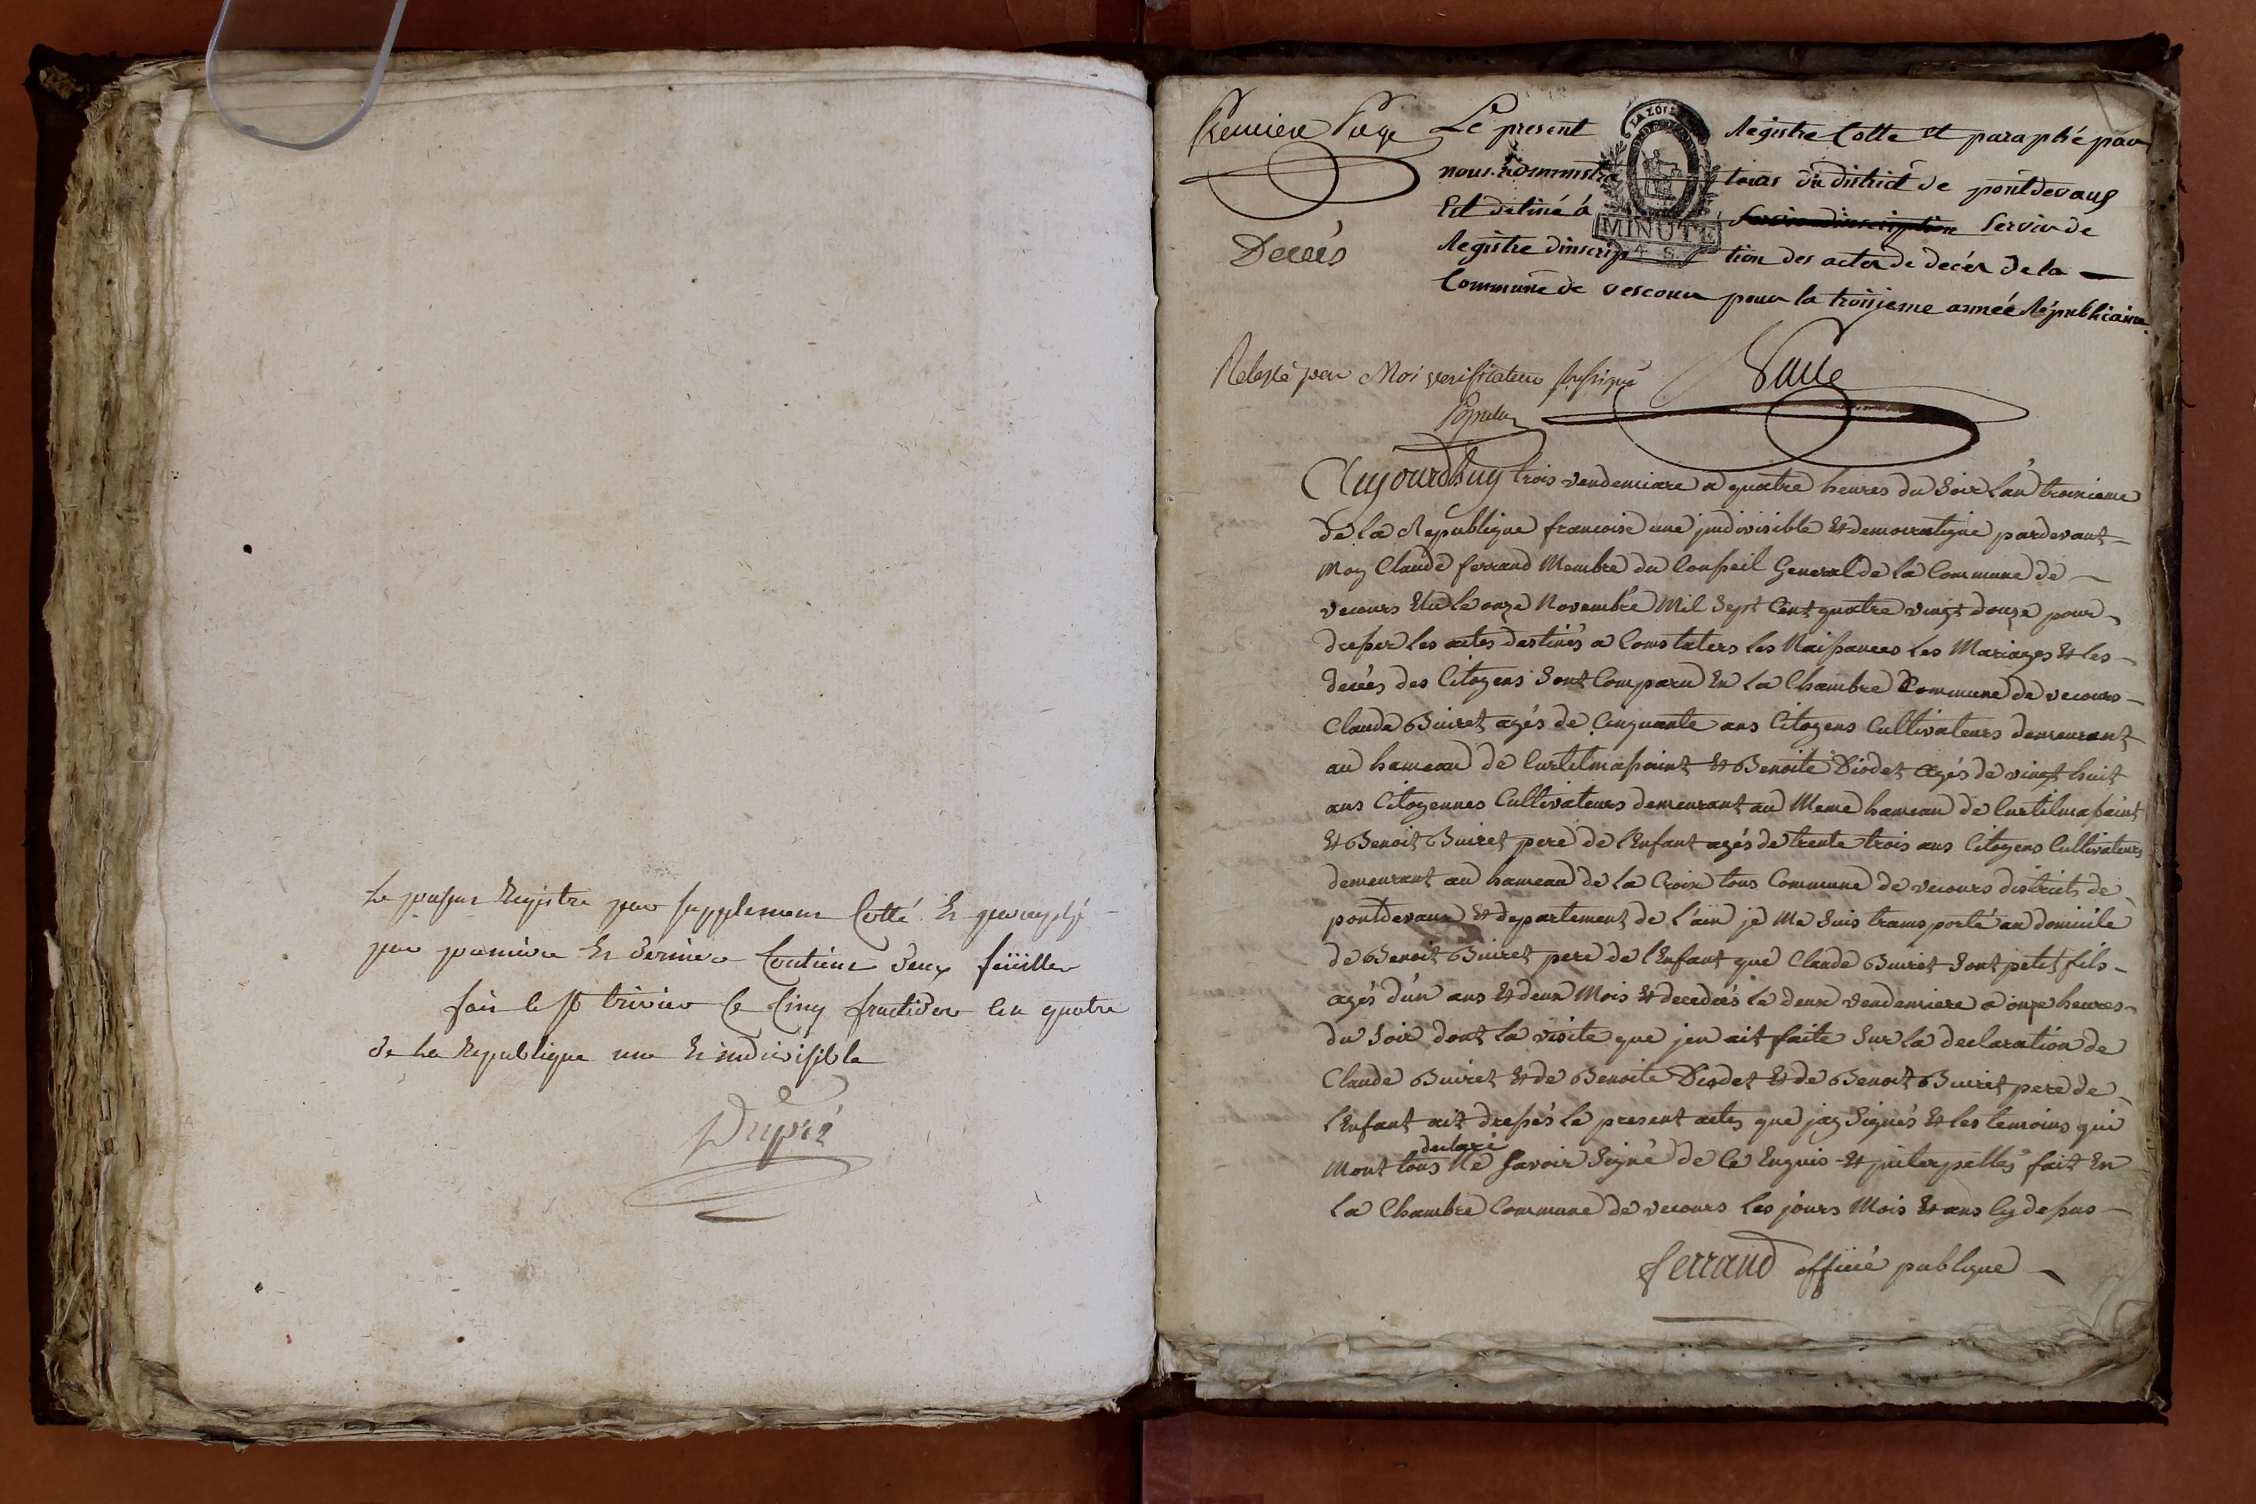 Le present Registre par supplement Cotté Et paraphé
par premiere Et derniere Contient deux feüilles
fait le St trivier Ce Cinq fructidor lan quatre
de La Republique une Et indivisible
Dupré
Premiere Page
Decès
Le present Registre Cotte et paraphé par
nous administrateurs du district de pontdevaux
Est destiné á servir dinscription Servir de
Registre dinscription des actes de decés de la
Commune de vescour pour la troisieme année Républicaine
LA LOI
MINUTE
4 S.
par Moi verificateur soussigné
Aujourdhuy trois vendemiare a quatre heures du Soir Lan troisieme
de la Republique francoise une jndivisible Et democratique pardevant
Moy Claude ferrand Membre du Conseil General de la Commune de
vecours Elu le onze Novembre Mil Sept Cent quatre vingt douze pour
dresser les actes destinés a Constaters les Naissances les Mariages Et les
decées des Citoyens Sont Comparu En La Chambre Commune de vecours
Claude Buiret agés de Cinquante ans Citoyens Cultivateurs demeurant
au hameau de Curtilmasaint Et Benoite Diodet agés de vingt huit
ans Citoyennes Cultivateurs demeurant au Meme hameau de Curtilmasaint
Et Benoit Buiret pere de l'Enfant agés de trente trois ans Citoyens Cultivateurs
demeurant au hameau de la Croix tous Commune de vecours districts de
pontdevaux Et departement de L'ain je Me Suis transporté au domicile
de Benoit Buiret pere de l'Enfant que Claude Buiret Sont petit fils
agés d'un ans Et deux Mois Et decedés le deux vendemiere a onze heures
du Soir dont la visite que jen ait faite Sur la declaration de
Claude Buiret Et de Benoite Diodet Et de Benoit Buiret pere de
l'Enfant ait dressés le present actes que jay Signés Et les temoins qui
Mont tous declaré Ne Savoir Signé de Ce Enquis Et jnterpellés fait En
La Chambre Commune de vecours Les jours Mois Et ans Cy dessus
ferrand officié publique